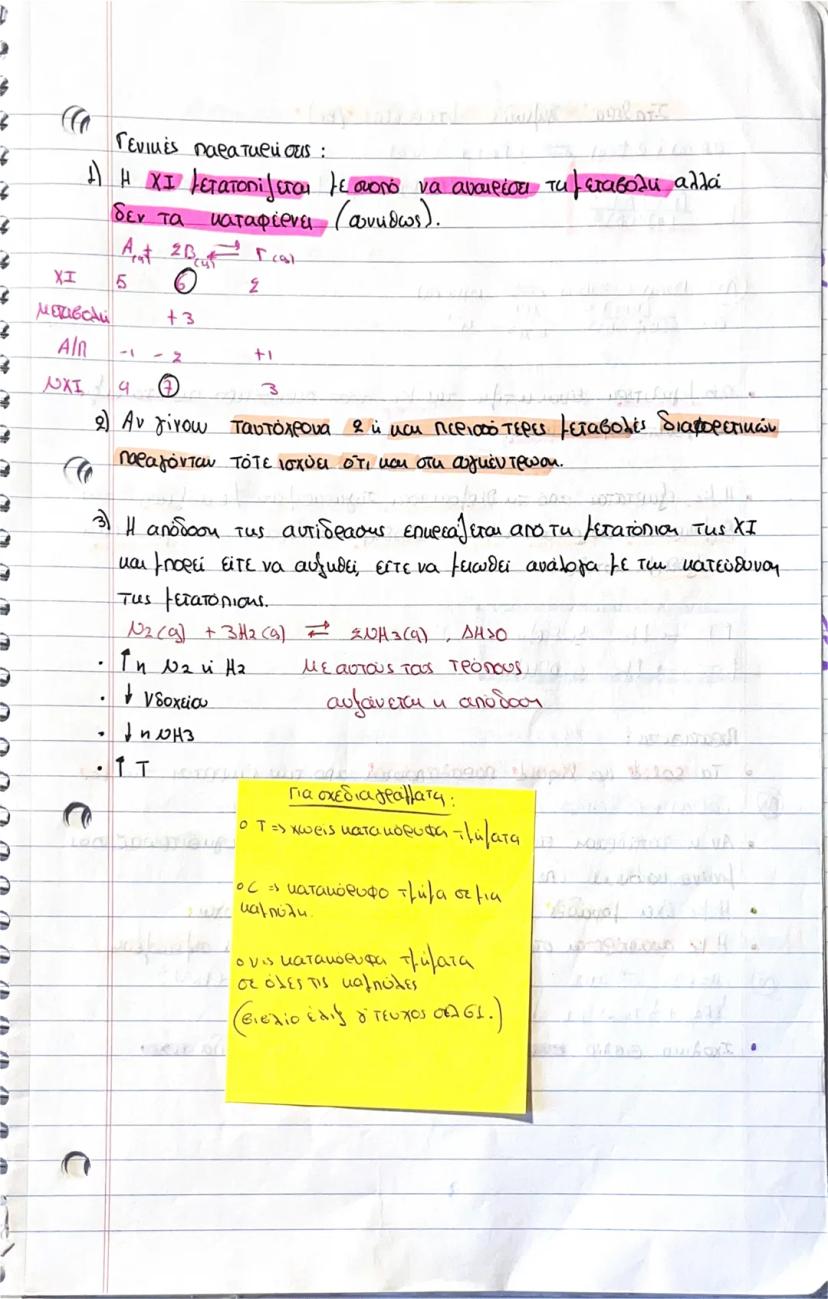 Γενικές παρατηρήσεις:
1) Η ΧΙ μετατοπίζεται με σκοπό να αναιρέσει τη μεταβολή αλλά
δεν τα καταφέρνει (συνήθως).
A(g) + 2B(g) ⇌ Γ(g)
ΧΙ 5 6 2
Μεταβολή +3
Α/Π -1 -2 +1
ΝΧΙ 4 7 3
2) Αν γίνουν ταυτόχρονα 2 ή και περισσότερες μεταβολές διαφορετικών
παραγόντων τότε ισχύει ότι και στη συγκέντρωση.
3) Η απόδοση της αντίδρασης επηρεάζεται από τη μετατόπιση της ΧΙ
και μπορεί είτε να αυξηθεί, είτε να μειωθεί ανάλογα με την κατεύθυνση
της μετατόπισης.
N2(g) + 3H2(g) ⇌ 2NH3(g) , ΔΗ>0
· ↑ n N2 ή H2 Με αυτούς τους τρόπους
· ↓ Vδοχείου αυξάνεται η απόδοση
· ↓ n NH3
· ↑ T
Για σχεδιαγράμματα:
ο T => χωρίς κατακόρυφα τμήματα
ο C => κατακόρυφο τμήμα σε μια
καμπύλη.
ο V => κατακόρυφα τμήματα
σε όλες τις καμπύλες
(βιβλίο έλιξ γ' τεύχος σελ 61.)